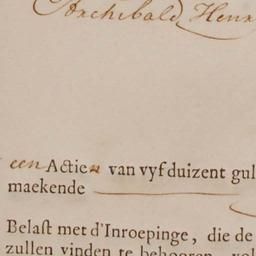 Archibald Henr
een Actien van vyf duizent gul
maekende
Belast met d'Inroepinge, die de
zullen vinden te behooren, vol